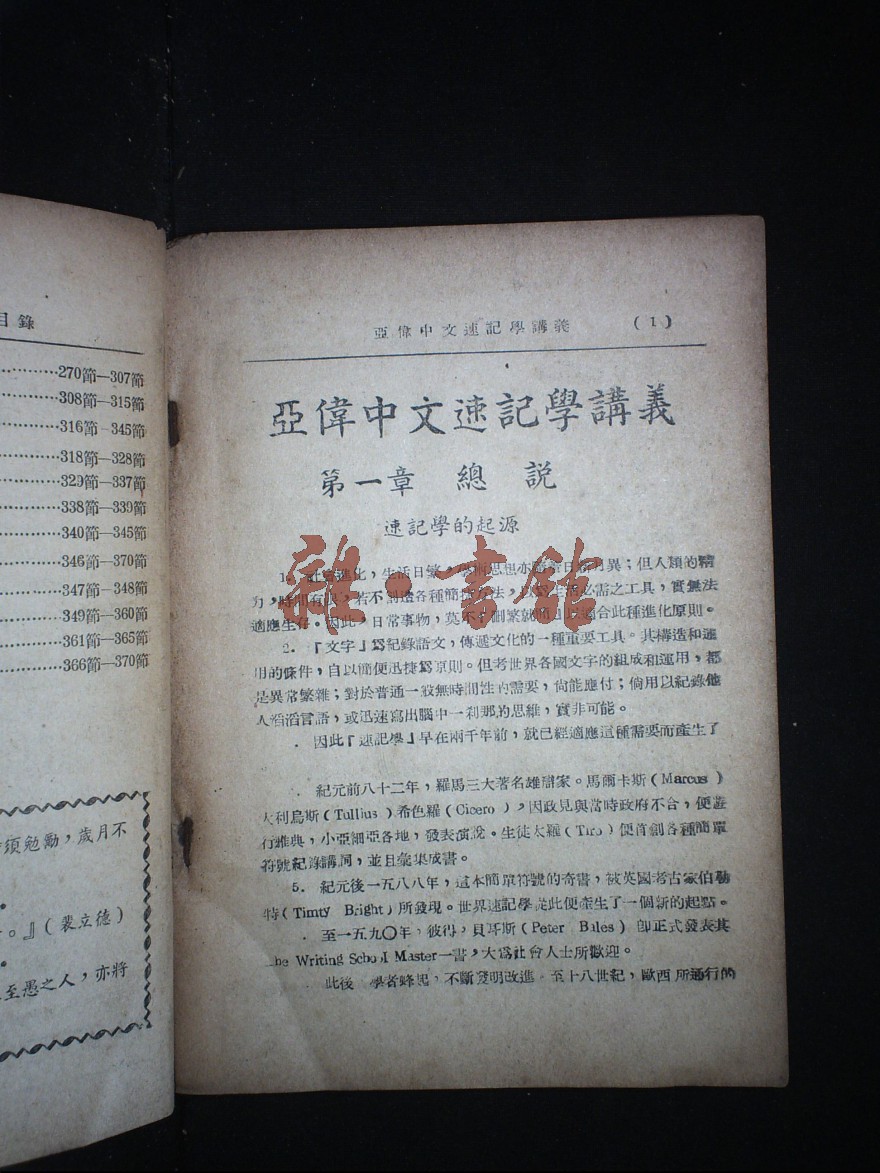 目錄
270節—307節
308節—315節
316節—345節
318節—328節
329節—337節
338節—339節
340節—345節
346節—370節
347節—348節
349節—360節
361節—365節
366節—370節
須勉勵，歲月不
。』（裴立德）
至愚之人，亦將
亞偉中文速記學講義 (1)
亞偉中文速記學講義
第一章 總說
速記學的起源
1. 進化，生活日繁，思想亦異；但人類的精
力，時間有若不創造各種簡法，必需之工具，實無法
適應生存。因此，日常事物，莫不刪繁就簡適合此種進化原則。
2. 『文字』爲紀錄語文，傳遞文化的一種重要工具。其構造和運
用的條件，自以簡便迅捷爲原則。但考世界各國文字的組成和運用，都
是異常繁雜；對於普通一般無時間性的需要，尙能應付；倘用以紀錄他
人滔滔言語，或迅速寫出腦中一刹那的思維，實非可能。
因此『速記學』早在兩千年前，就已經適應這種需要而產生了
紀元前八十二年，羅馬三大著名雄辯家。馬爾卡斯（Marcus）
大利烏斯（Tullius）希色羅（Cicero），因政見與當時政府不合，便遊
行雅典，小亞細亞各地，發表演說。生徒太羅（Tiro）便首創各種簡單
符號紀錄講詞，並且彙集成書。
5. 紀元後一五八八年，這本簡單符號的奇書，被英國考古家伯勒
特（Timty Bright）所發現。世界速記學從此便產生了一個新的起點。
至一五九〇年，彼得，貝耳斯（Peter Bales）卽正式發表其
he Writing School Master一書，大爲社會人士所歡迎。
此後 學者蜂起，不斷發明改進 至十八世紀，歐西所通行的
雜·書館